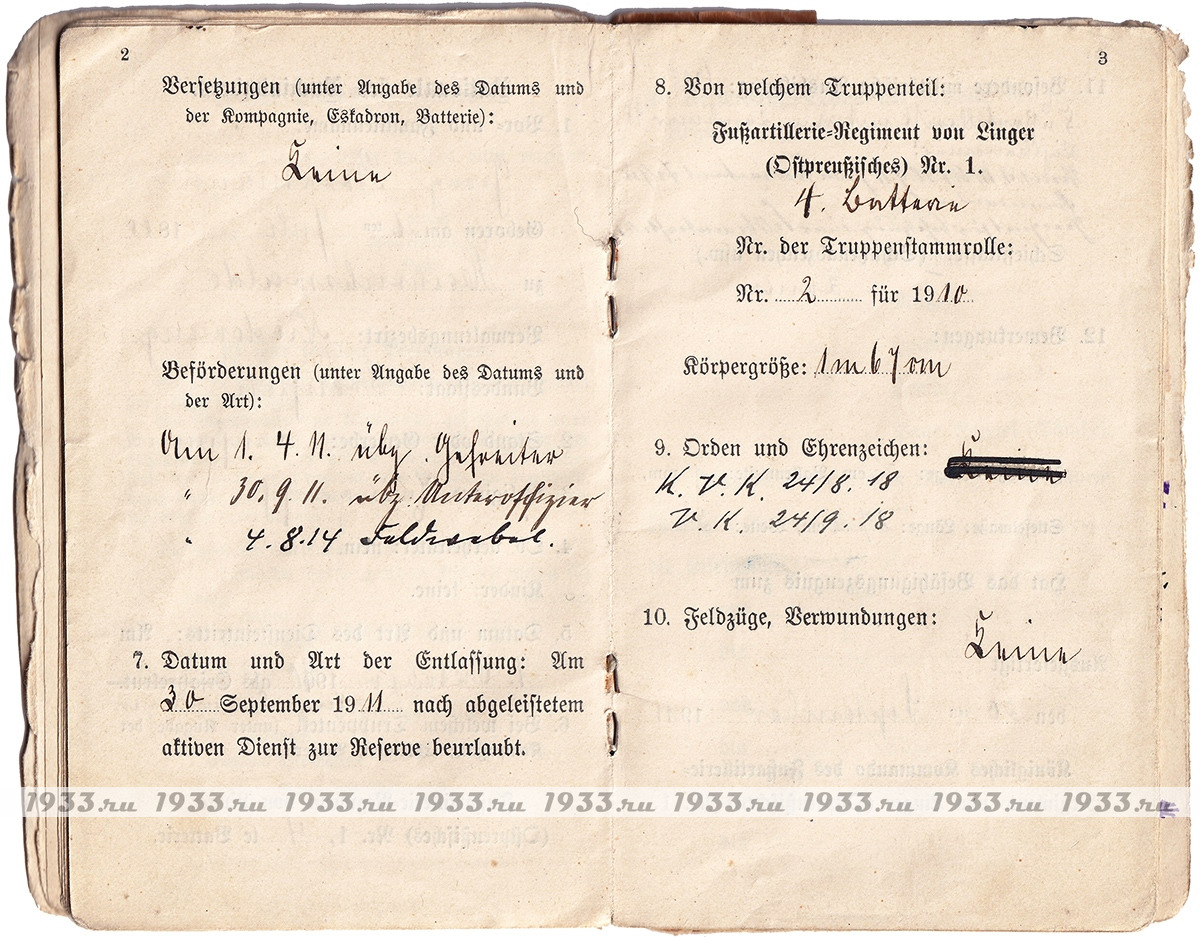 2
Versetzungen (unter Angabe des Datums und
der Kompagnie, Eskadron, Batterie):
Keine
Beförderungen (unter Angabe des Datums und
der Art):
Am 1. 4. 11. übz. Gefreiter
" 30. 9. 11. übz. Unteroffizier
" 4. 8. 14 Feldwebel.
7. Datum und Art der Entlassung: Am
30 September 1911 nach abgeleistetem
aktiven Dienst zur Reserve beurlaubt.
3
8. Von welchem Truppenteil:
Fußartillerie-Regiment von Linger
(Ostpreußisches) Nr. 1.
4. Batterie
Nr. der Truppenstammrolle:
Nr. 2 für 1910
Körpergröße: 1 m 67 cm
9. Orden und Ehrenzeichen: Keine
K. V. K. 24/8. 18
V. K. 24/9. 18
10. Feldzüge, Verwundungen:
Keine
1933.ru 1933.ru 1933.ru 1933.ru 1933.ru 1933.ru 1933.ru 1933.ru 1933.ru